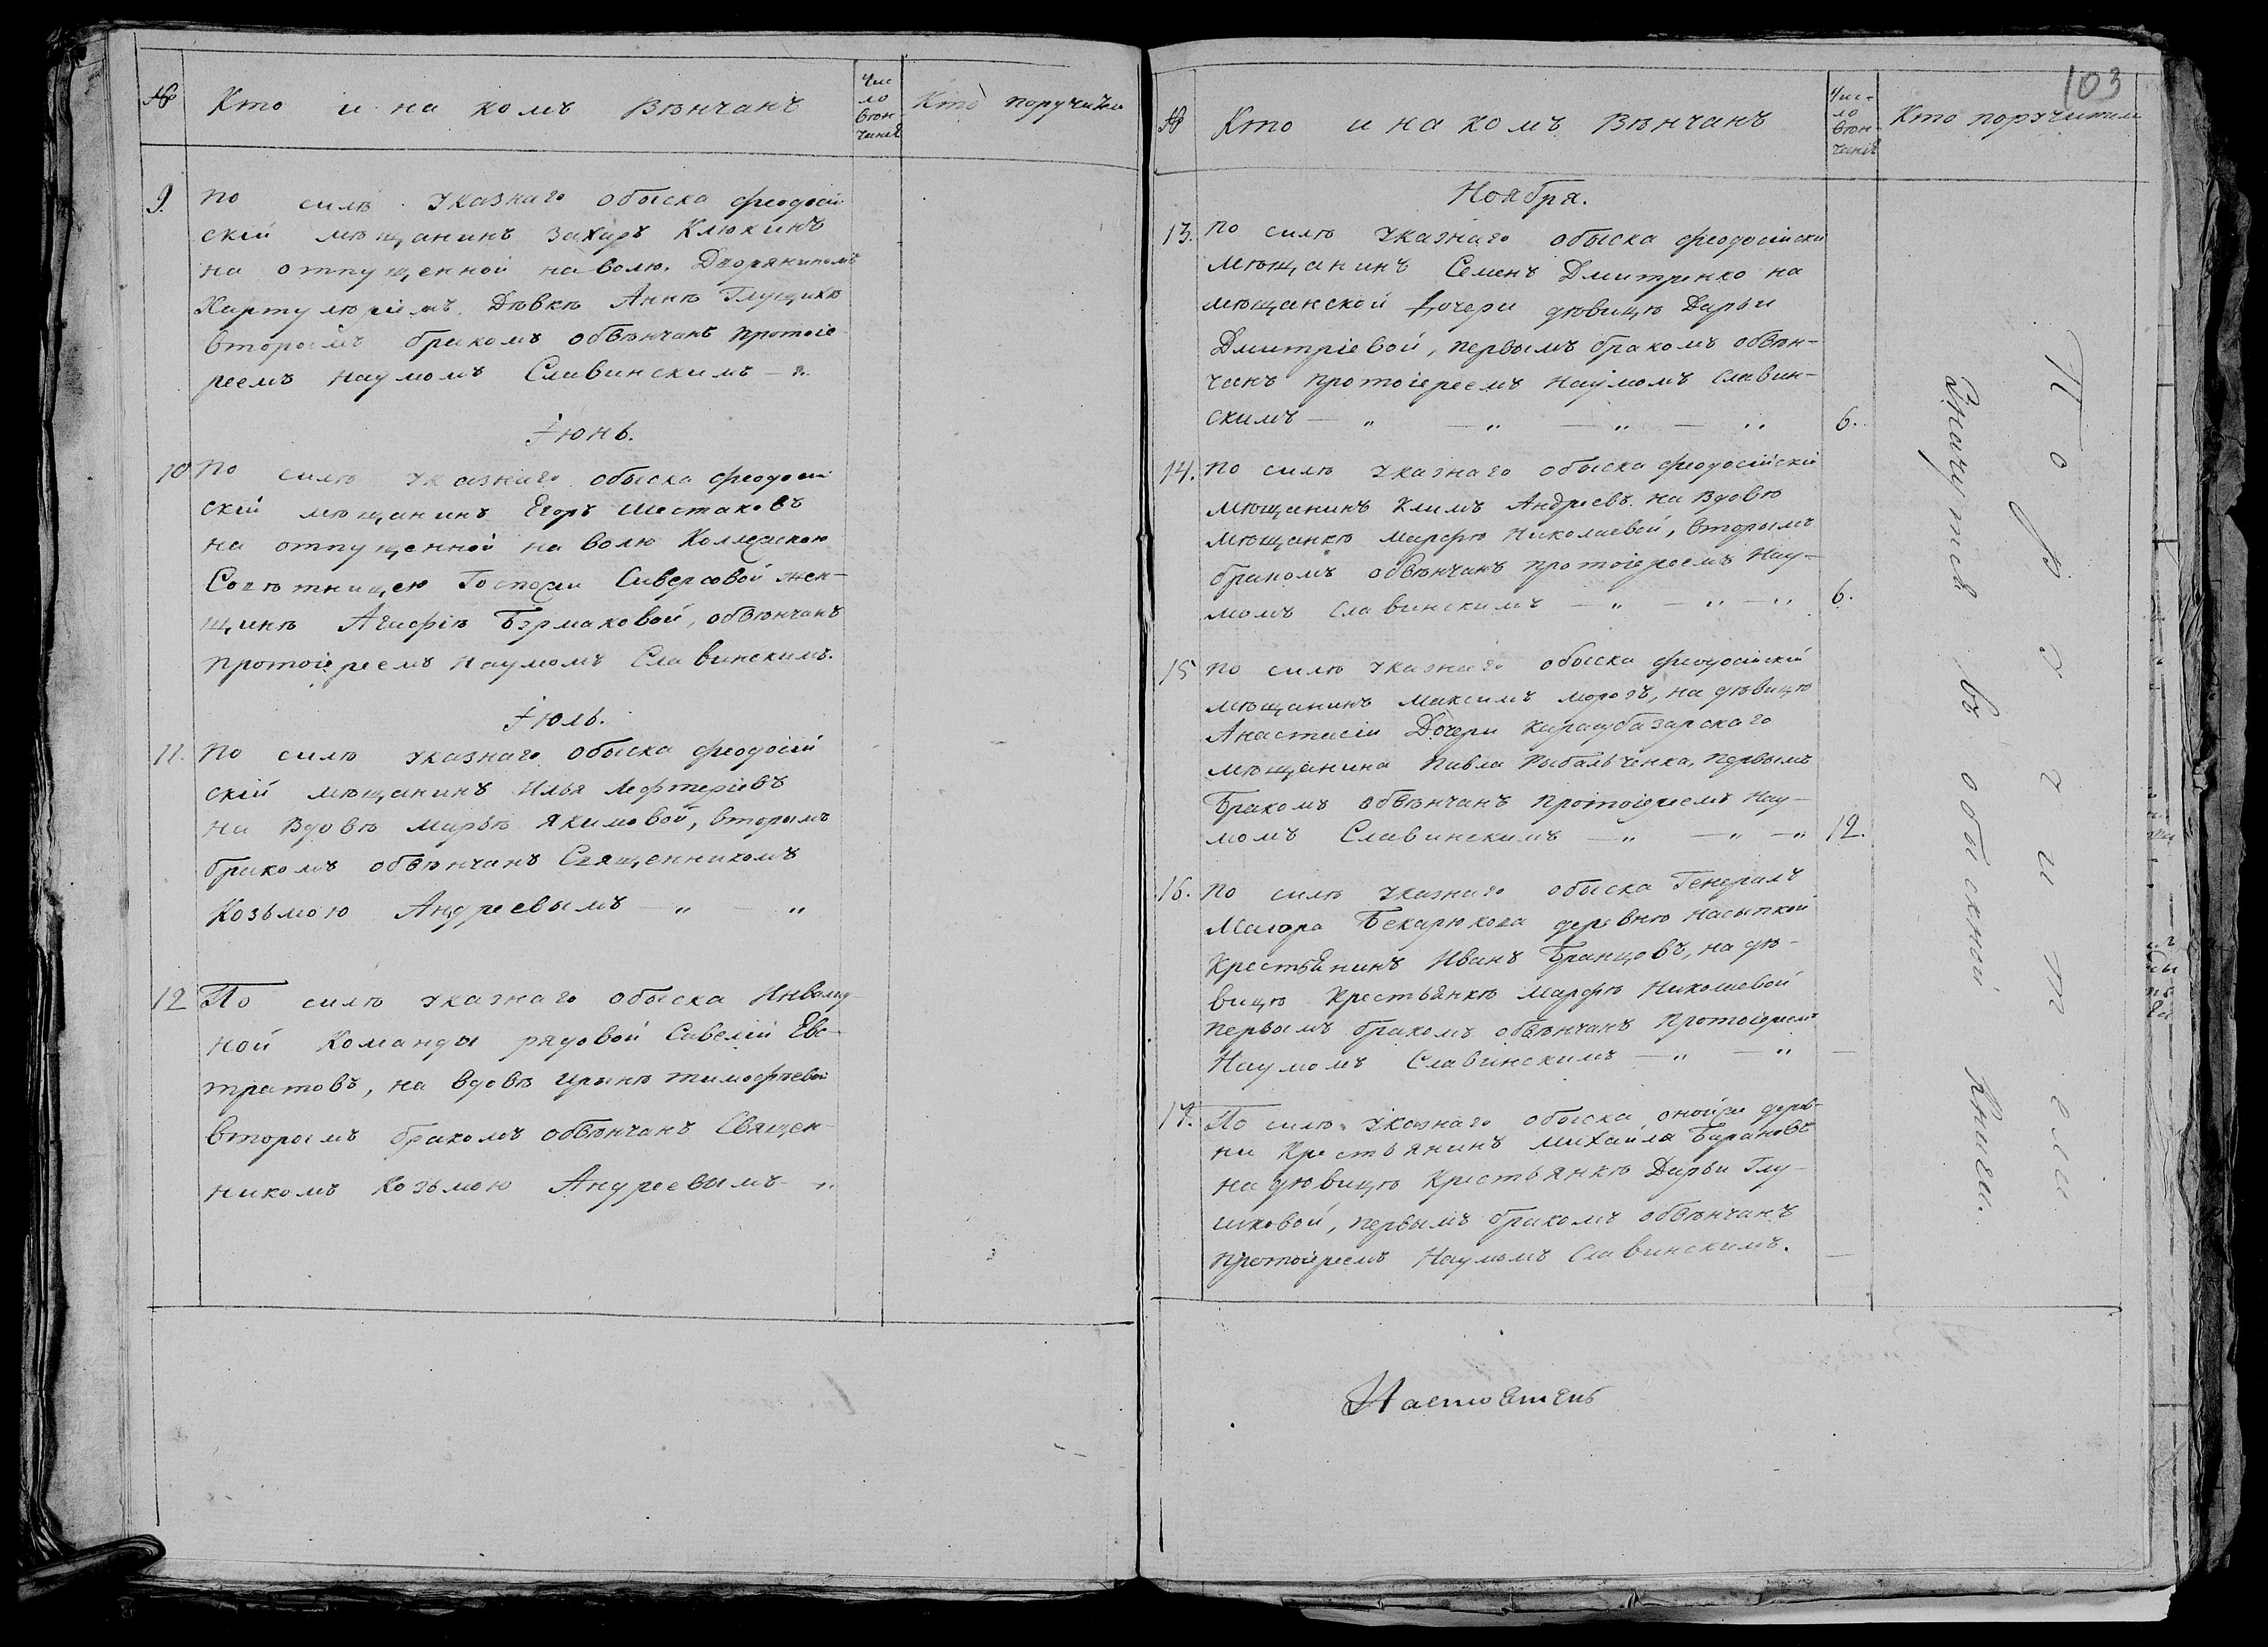 № Кто и на комъ Вѣнчанъ Число вѣнчанія Кто поручители
9. По силѣ указнаго обыска феодосій
скій мѣщанинъ Захаръ Клюкинъ
на отпущенной на волю Дворяниномъ
Хартулѣріемъ Дѣвкѣ Аннѣ
вторымъ бракомъ обвѣнчанъ протоіе
реемъ Наумомъ Славинскимъ — „
Іюнь.
10 По силѣ указнаго обыска феодосій
скій мѣщанинъ Егоръ Шестаковъ
на отпущенной на волю Коллежскою
Совѣтницею Госпожи Сиверсовой жен-
щинѣ Агафіѣ Бурмаковой, обвѣнчанъ
протоіереемъ Наумомъ Славинскимъ.
Іюль.
11. По силѣ указнаго обыска феодосій
скій мѣщанинъ Илья Лефтеріевъ
на Вдовѣ Марьѣ Якимовой, вторымъ
бракомъ обвѣнчанъ Священникомъ
Козьмою Андреевымъ — „ — „
12 По силѣ указнаго обыска Инвалид
ной Команды рядовой Савелій Евс-
тратовъ, на вдовѣ Иринѣ Тимофѣевой
вторымъ бракомъ обвѣнчанъ Священ-
никомъ Козьмою Андреевымъ — „
103
№ Кто и на комъ Вѣнчанъ Чис-ло вѣн-чанія Кто поручители
Ноября.
13. По силѣ указнаго обыска феодосійски
мѣщанинъ Семенъ Дмитренко на
мѣщанской дочери дѣвицѣ Дарьи
Дмитріевой, первымъ бракомъ обвѣн-
чанъ протоіереемъ Наумомъ Славин-
скимъ — „ — „ — „ — „ 6.
14. По силѣ указнаго обыска феодосійскій
мѣщанинъ Климъ Андреевъ на Вдовѣ
мѣщанкѣ Марфѣ Николаевой, вторымъ
бракомъ обвѣнчанъ протоіереемъ Нау-
момъ Славинскимъ — „ — „ — „ 6.
15 По силѣ указнаго обыска феодосійскій
мѣщанинъ Максимъ Морозъ, на дѣвицѣ
Анастасіи Дочери карасубазарскаго
мѣщанина Павла Рыбальченка, первымъ
Бракомъ обвѣнчанъ протоіереемъ Нау-
момъ Славинскимъ — „ — „ — „ 12.
16. По силѣ указнаго обыска Генералъ
Маіора Бекарюкова деревнѣ Насыпкой
Крестьянинъ Иванъ Бранцовъ, на дѣ-
вицѣ Крестьянкѣ Марфѣ Николаевой
первымъ бракомъ обвѣнчанъ протоіереемъ
Наумомъ Славинскимъ — „ — „ —
17. По силѣ указнаго обыска оной же дерев-
ни Крестьянинъ Михайла Барановъ
на дѣвицѣ Крестьянкѣ Дарьи Глу-
шковой, первымъ бракомъ обвѣнчанъ
протоіереемъ Наумомъ Славинскимъ. —
Поручители
Значутся въ обыскной книги.